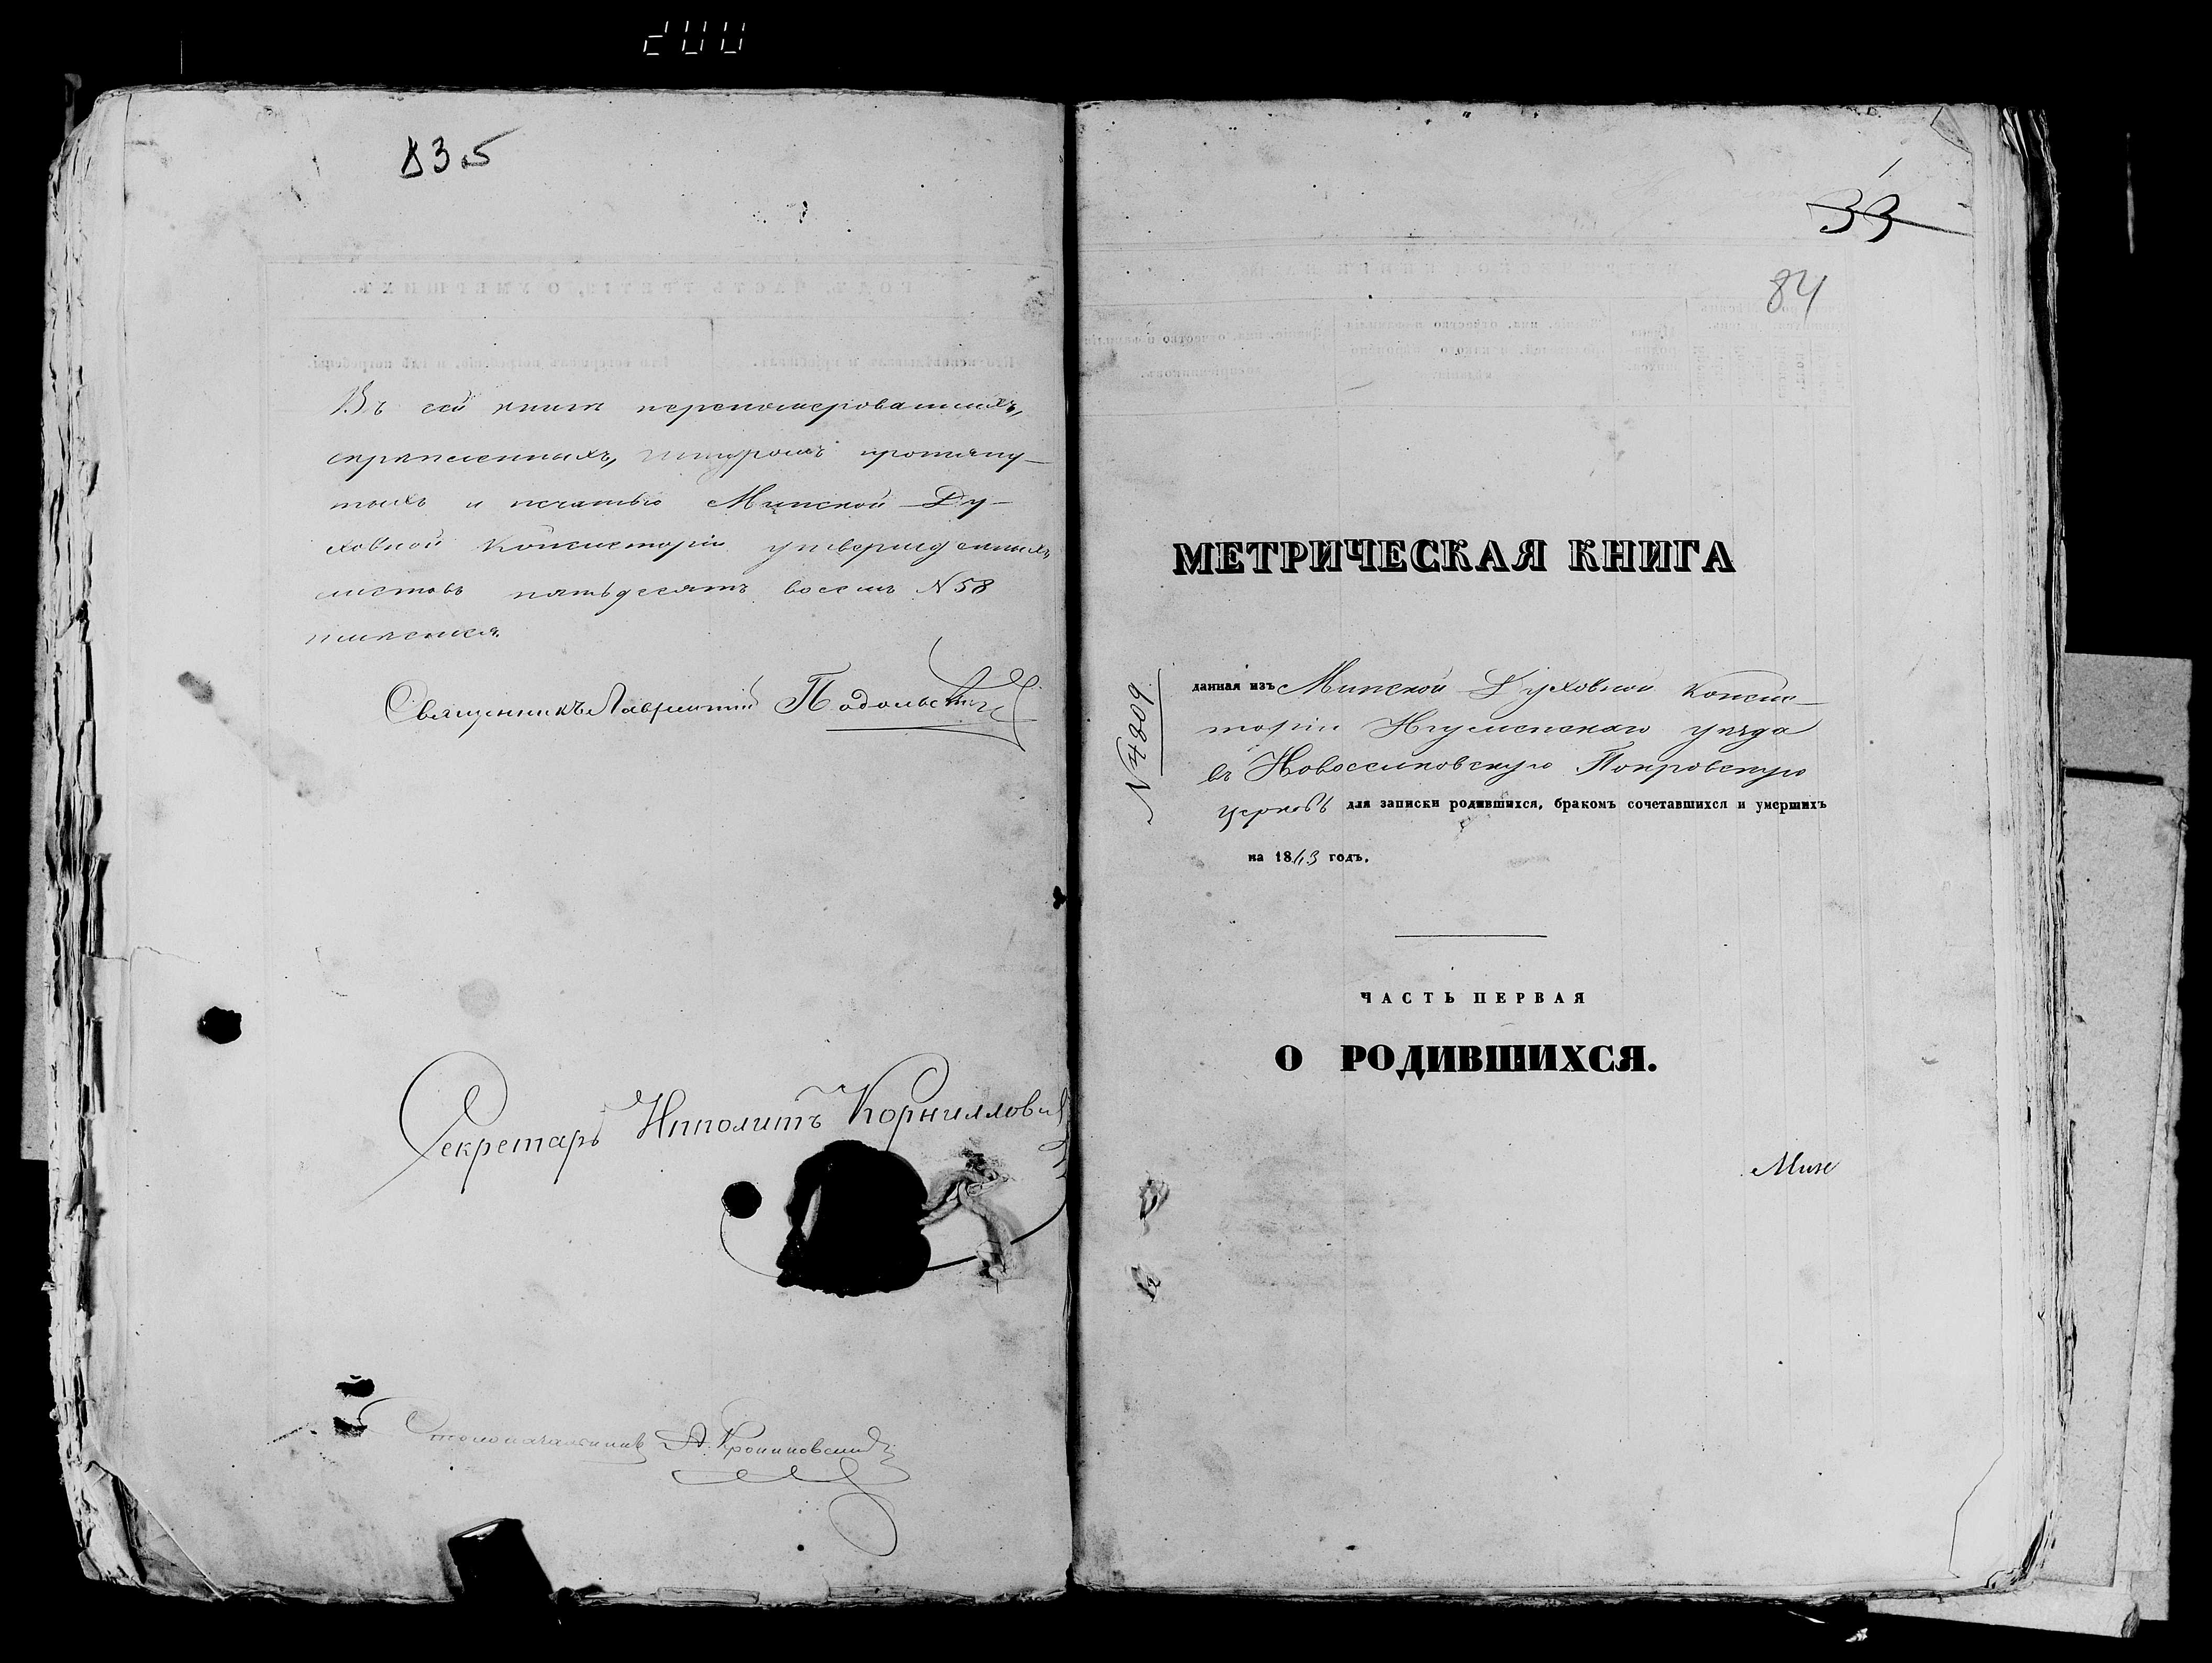 835
Въ сей книгѣ перенумерованныхъ,
скрѣпленныхъ, шнуромъ протяну-
тыхъ и печатью Минской Ду-
ховной Консисторіи утвержденныхъ
листовъ пятьдесятъ восемь N 58
Священникъ Лаврентій Подольскій
Секретарь Ипполитъ Корниллови
Столоначальникъ А.
33
84
МЕТРИЧЕСКАЯ КНИГА
N 4809
данная изъ Минской Духовной Консис-
торіи Игуменскаго уѣзда
въ Новоселковскую Покровскую
церковь для записки родившихся, бракомъ сочетавшихся и умершихъ
на 1863 годъ.
ЧАСТЬ ПЕРВАЯ
О РОДИВШИХСЯ.
Мин